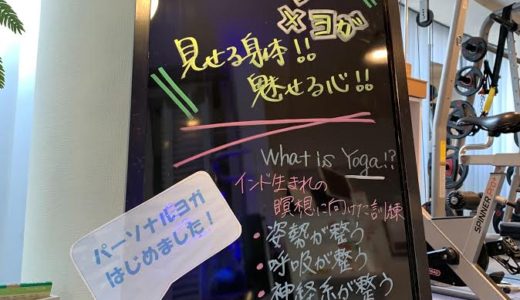 ×ヨガ
見せる身体!!
魅せる心!!
What is Yoga!?
インド生まれの
瞑想に向けた訓練
・姿勢が整う
・呼吸が整う
・神経系が整う
パーソナルヨガ
はじめました!
SPINNER PRO+